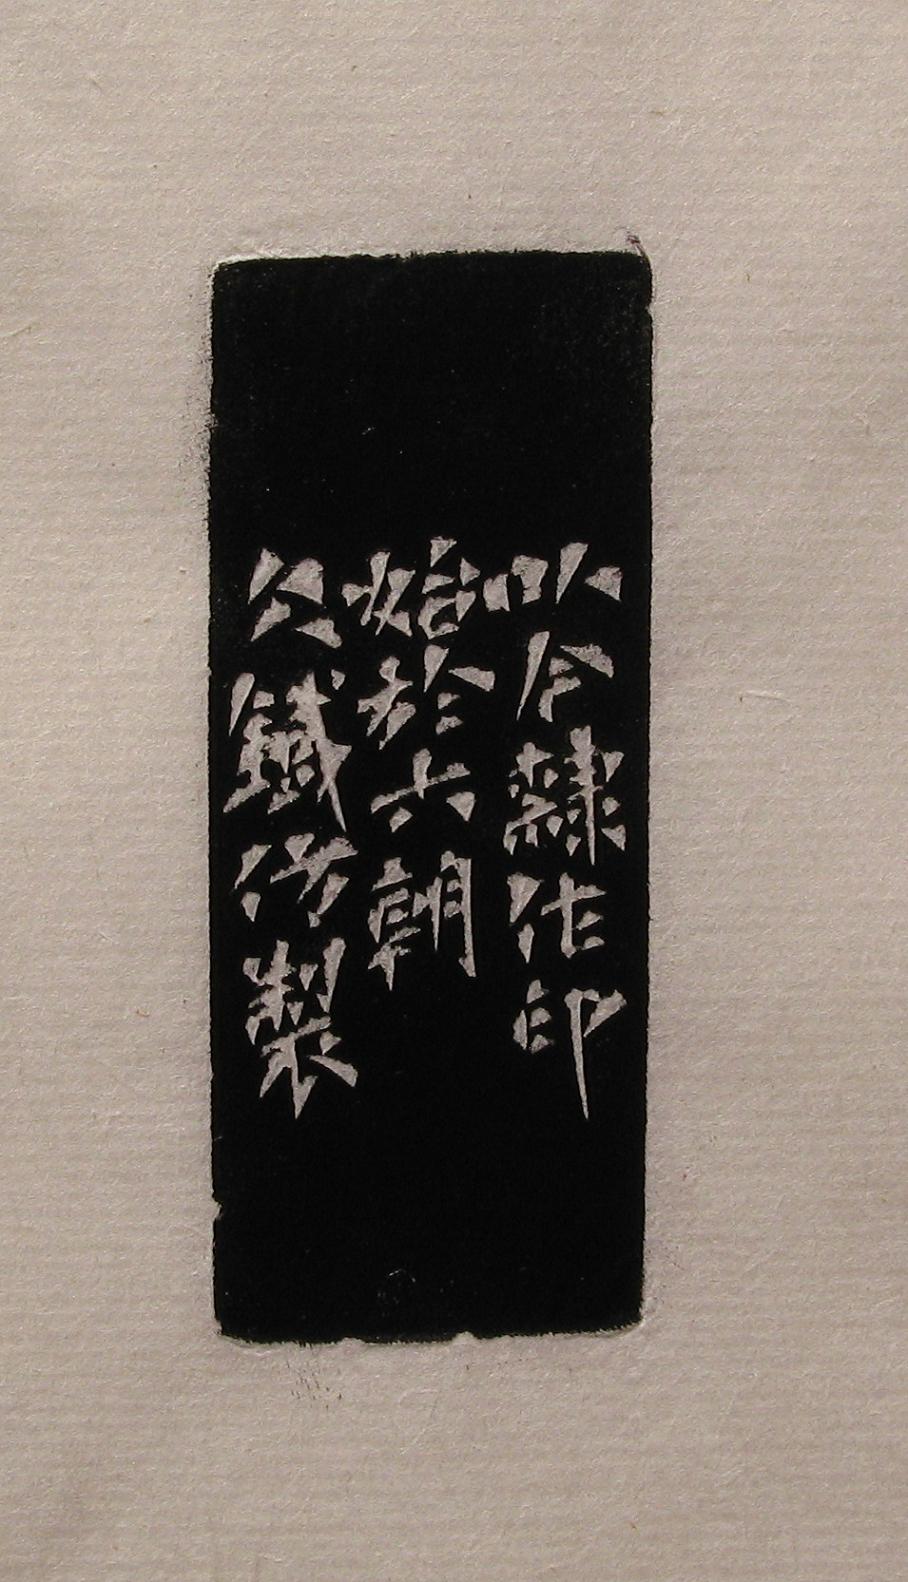 以今隸作印
始於六朝
公鐵仿製